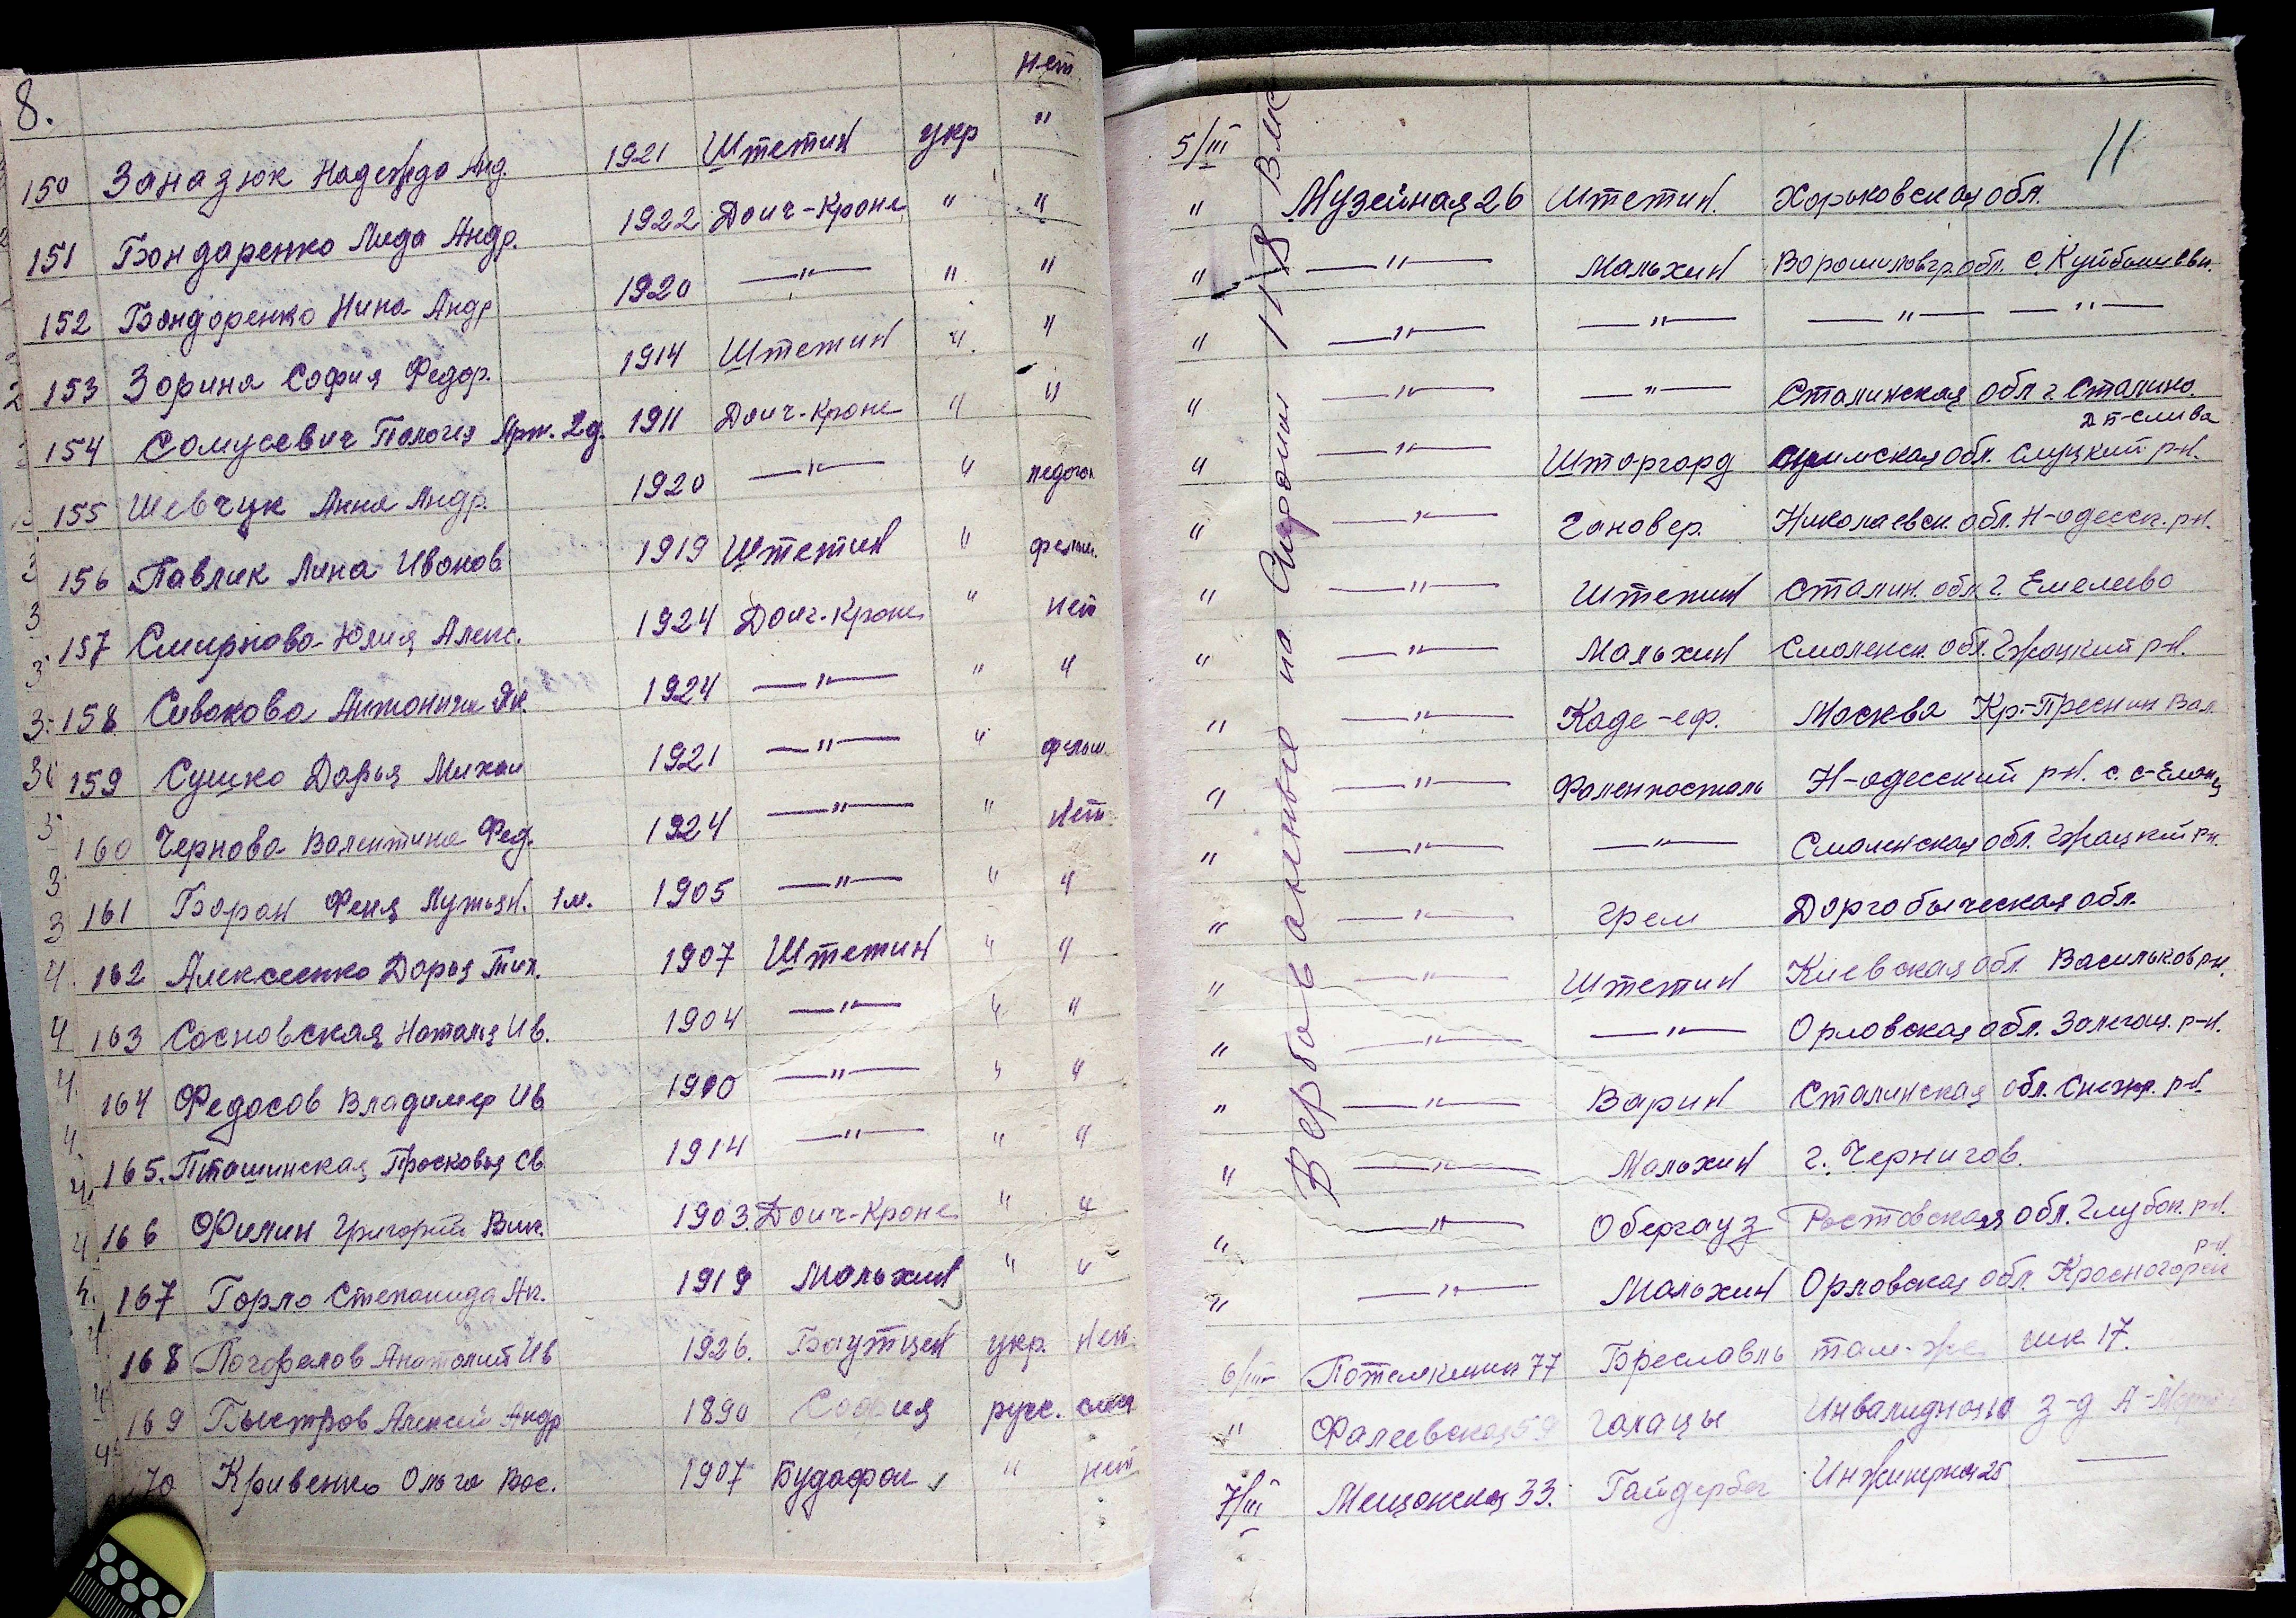 8.
нет
150 Заназюк Надежда Анд. 1921 Штетин укр "
151 Бондаренко Лида Андр. 1922 Дойч-Кроне " "
152 Бондаренко Нина Андр 1920 —"— " "
153 Зорина София Федор. 1914 Штетин " "
154 Самусевич Пологея Арт. 2д. 1911 Дойч-Кроне " "
155 Шевчук Анна Андр. 1920 —"— " педагог
156 Павлик Лина Иванов 1919 Штетин " фельш.
157 Смирнова Юлия Алекс. 1924 Дойч-Кроне " нет
158 Сивакова Антонина Як. 1924 —"— " "
159 Сушко Дарья Михаи 1921 —"— " фельш.
160 Чернова Валентина Фед. 1924 —"— " нет
161 Боран Феня Лутьян. 1м. 1905 —"— " "
162 Алексеенко Дарья Тих. 1907 Штетин " "
163 Сосновская Наталья Ив. 1904 —"— " "
164 Федосов Владимир Ив 1900 —"— " "
165. Пташинская Прасковья Св 1914 —"— " "
166 Филин Григорий Вик. 1903. Дойч-Кроне " "
167 Горло Степанида Ан. 1919 Мальхин " "
168 Погорелов Анатолий Ив 1926. Баутцен укр. нет.
169 Быстров Алексей Андр 1890 София русс.
170 Кривенко Ольга Вас. 1907 Будафок " нет
11
5/III
" Музейная 26 Штетин. Харьковская обл.
" —"— Мальхин Ворошиловгр. обл. с. Куйбышевк.
" —"— —"— —"— —"—
" —"— —"— Сталинская обл г Сталино.
" —"— Штаргард обл. Слуцкий р-н.
" —"— Гановер. Николаевск. обл. Н-одесск. р-н.
" —"— Штетин Сталин. обл. г. Емелево
" —"— Мальхин Смоленск. обл. Гжацкий р-н.
" —"— Каде-еф. Москва Кр.-Преснин Вал.
" —"— Фаленпосталь Н-одесский р-н. с. с-Еланц
" —"— —"— Смоленская обл. Гжацкий р-н.
" —"— Грем Дрогобыческая обл.
" —"— Штетин Киевская обл. Васильков р-н.
" —"— —"— Орловская обл. Залегощ. р-н.
" —"— Варин Сталинская обл. Снежн. р-н.
" —"— Мальхин г. Чернигов.
" —"— Обергауз Ростовская обл. Глубок. р-н.
" —"— Мальхин Орловская обл. Красногорск р-н.
6/III Потемкинск 77 Бреславль там-же шк 17.
" Фалеевская 59 Галацы Инвалидная з-д А-Марти
7/III Мещанская 33. Гайдербег Инженерная 25 —
Вербованные на